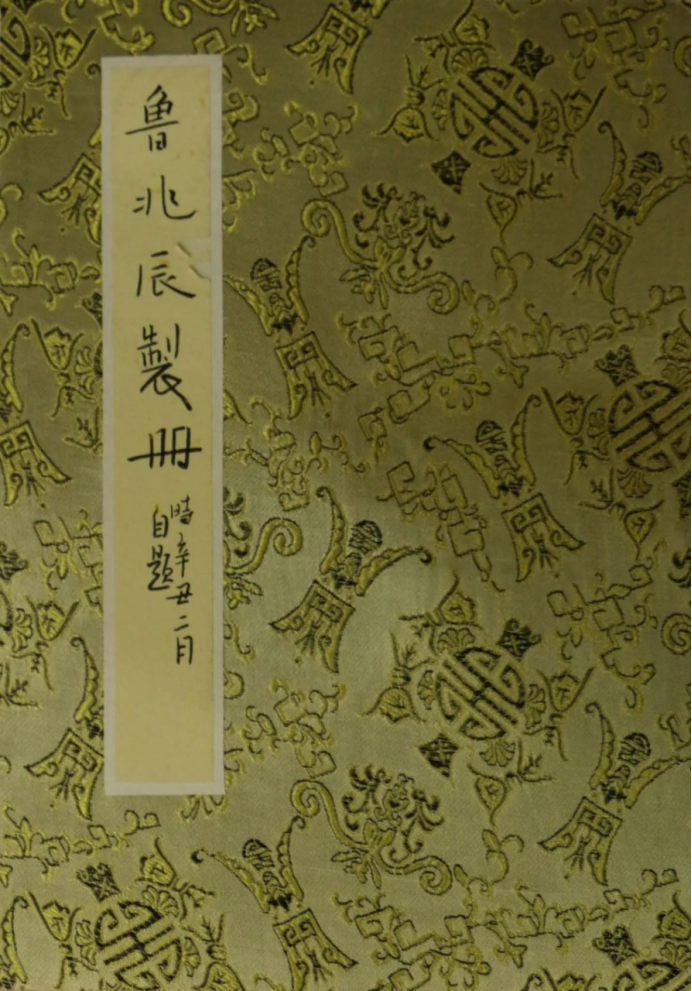 魯兆辰製册
時辛丑二月
自題